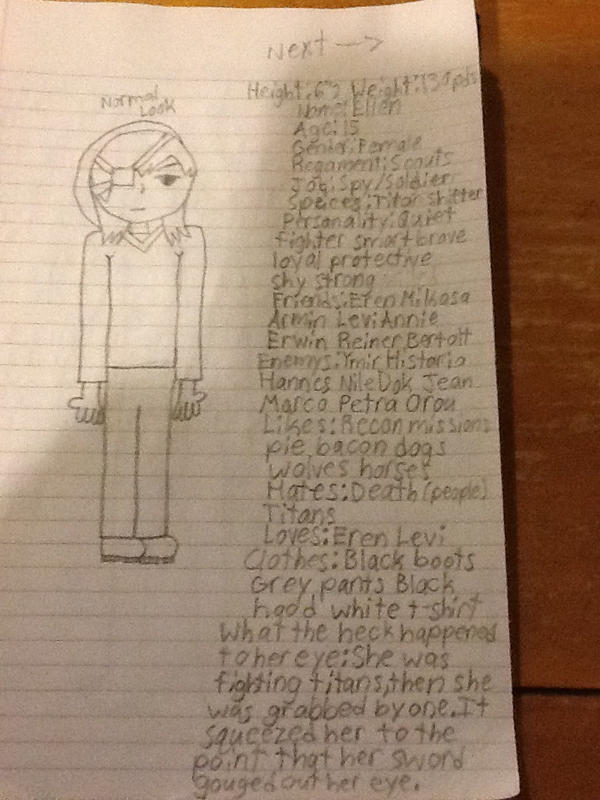 Next -->
Normal
Look
Height: 6'2 Weight: 139pds
Name: Ellen
Age: 15
Gender: Female
Regament: Scouts
Job: Spy/Soldier
Speices: Titan shifter
Personality: Quiet
fighter smart brave
loyal protective
shy strong
Friends: Eren Mikasa
Armin Levi Annie
Erwin Reiner Bertolt
Enemys: Ymir Historia
Hannes Nile Dok Jean
Marco Petra Orou
Likes: Recon missions
pie bacon dogs
wolves horses
Hates: Death (people)
Titans
Loves: Eren Levi
Clothes: Black boots
Grey pants Black
hood white t-shirt
What the heck happened
to her eye: She was
fighting titans, then she
was grabbed by one. It
squeezed her to the
point that her sword
gouged out her eye.